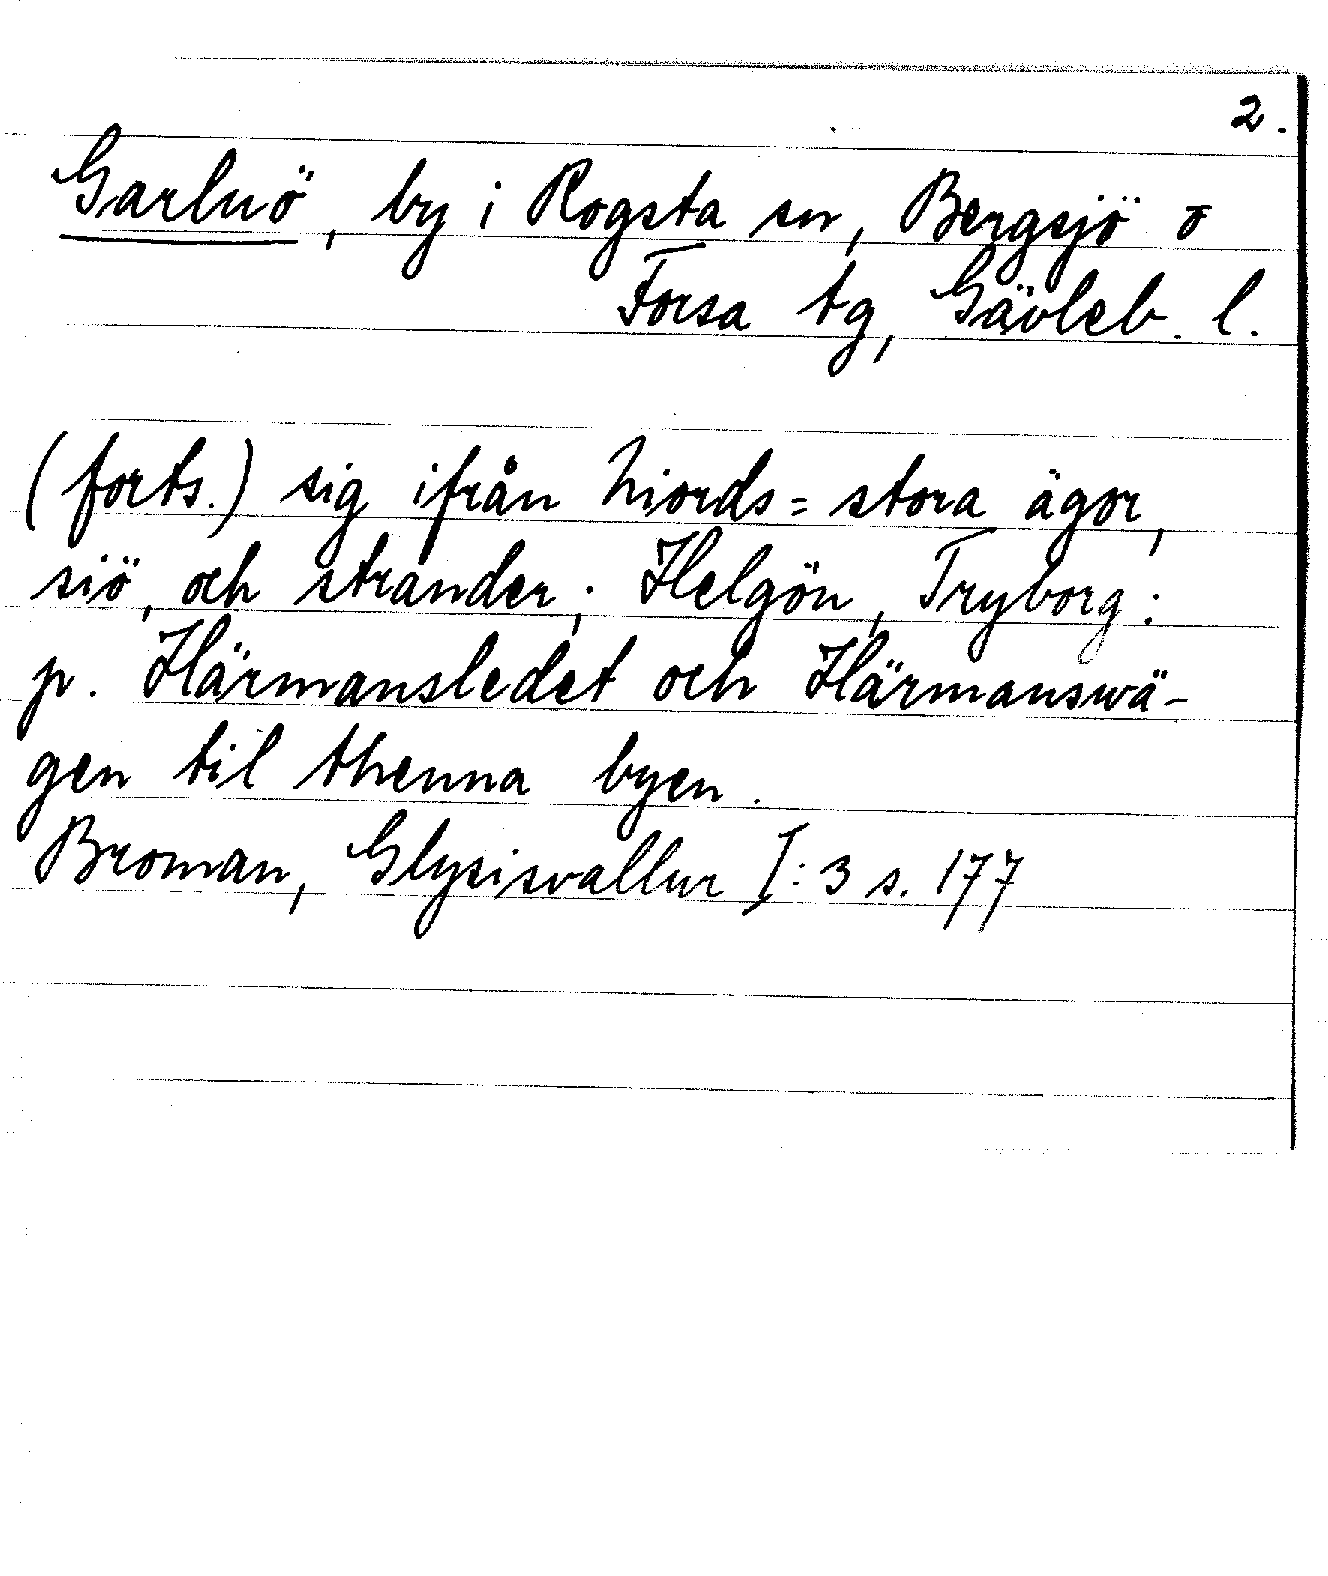 2.
Garluö, by i Rogsta sn, Bergsjö o
Forsa tg, Gävleb. l.
(forts.) sig ifrån hiords=stora ägor,
siö, och stränder; Helgön, Tryborg:
p. Härmansledet och Härmanswä-
gen til thenna byen.
Broman, Glysisvallur I:3 s. 177